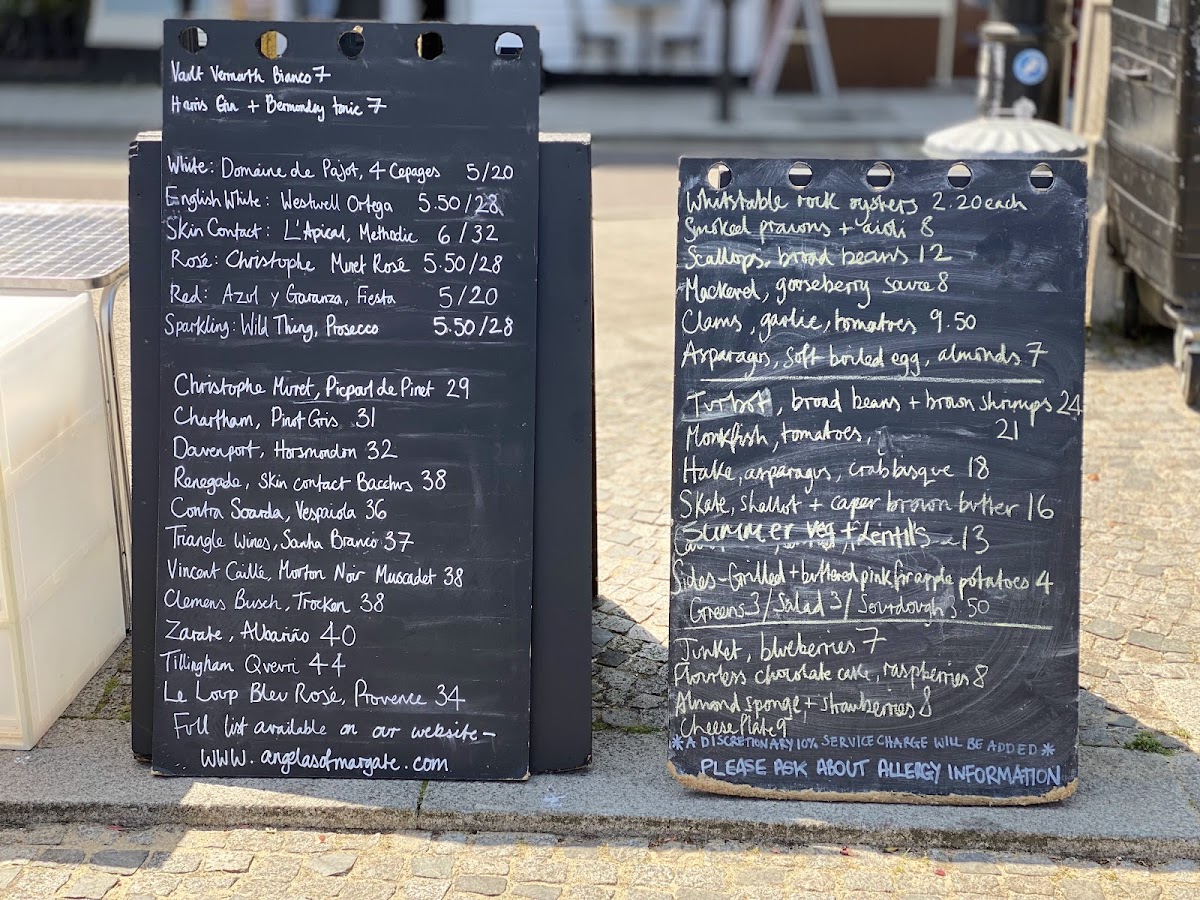 Vault Vermouth Bianco 7
Harris Gin + Bermondsey tonic 7
White: Domaine de Pajot, 4 Cepages 5/20
English White: Westwell Ortega 5.50/28
Skin Contact: L'Apical, Methodic 6/32
Rosé: Christophe Muret Rosé 5.50/28
Red: Azul y Garanza, Fiesta 5/20
Sparkling: Wild Thing, Prosecco 5.50/28
Christophe Muret, Picpoul de Pinet 29
Chartham, Pinot Gris 31
Davenport, Horsmondon 32
Renegade, Skin contact Bacchus 38
Contra Soarda, Vespaiola 36
Triangle Wines, Sanha Branco 37
Vincent Caillé, Morton Noir Muscadet 38
Clemens Busch, Trocken 38
Zarate, Albariño 40
Tillingham Qvevri 44
Le Loup Bleu Rosé, Provence 34
Full list available on our website -
www.angelasofmargate.com
Whitstable rock oysters 2.20 each
Smoked prawns + aioli 8
Scallops, broad beans 12
Mackerel, gooseberry sauce 8
Clams, garlic, tomatoes 9.50
Asparagus, soft boiled egg, almonds 7
Turbot, broad beans + brown shrimps 24
Monkfish, tomatoes, 21
Hake, asparagus, crab bisque 18
Skate, shallot + caper brown butter 16
Summer veg + Lentils - 13
Sides - Grilled + buttered pink fir apple potatoes 4
Greens 3 / Salad 3 / Sourdough 3.50
Junket, blueberries 7
Flourless chocolate cake, raspberries 8
Almond sponge + strawberries 8
Cheese Plate 9
*A DISCRETIONARY 10% SERVICE CHARGE WILL BE ADDED*
PLEASE ASK ABOUT ALLERGY INFORMATION